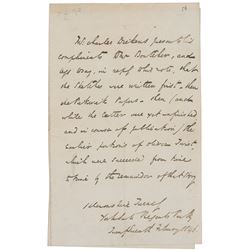 Mr Charles Dickens presents his
compliments Mr Butcher, and
begs to say, in reply his note, that
the Sketches were written first, then
the Pickwick Papers. then (and
while the latter were yet unfinished
and in course of publication) the
earlier portions of Oliver Twist
which were succeeded from time
to time by the remainder of the story
Devonshire Terrace
York Gate Regents Park
February 1841